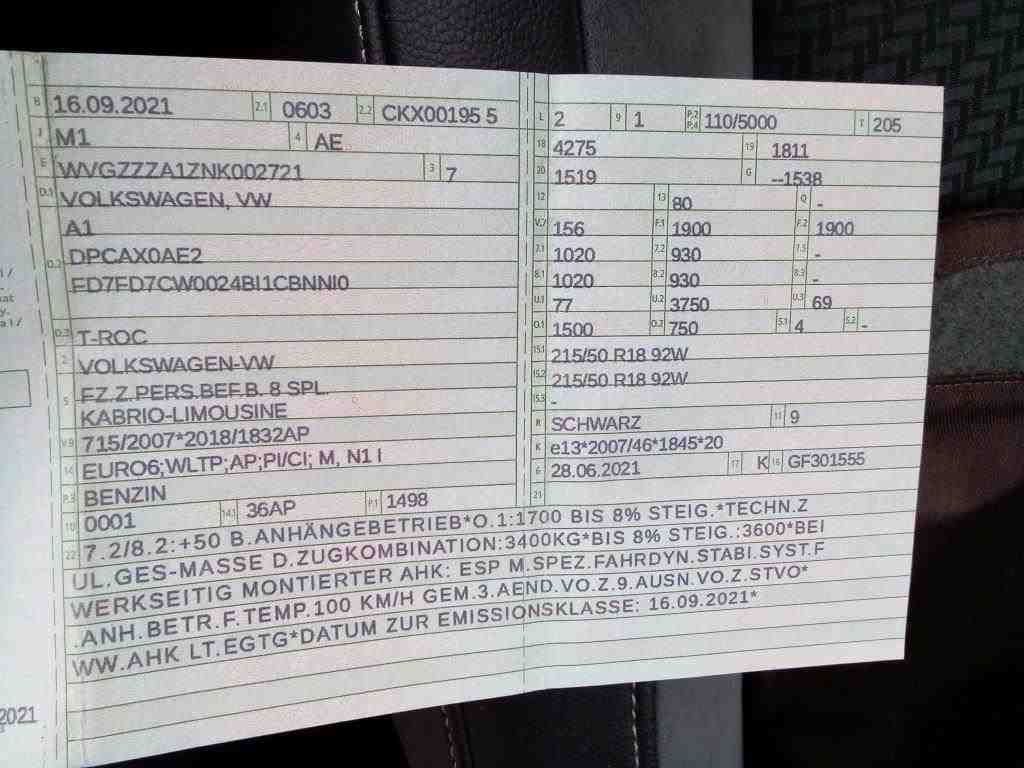 B 16.09.2021 2.1 0603 2.2 CKX00195 5
J M1 4 AE
E WVGZZZA1ZNK002721 3 7
D.1 VOLKSWAGEN, VW
A1
D.2 DPCAX0AE2
FD7FD7CW0024BI1CBNNI0
D.3 T-ROC
2 VOLKSWAGEN-VW
5 FZ.Z.PERS.BEF.B. 8 SPL.
KABRIO-LIMOUSINE
V.9 715/2007*2018/1832AP
14 EURO6;WLTP;AP;PI/CI; M, N1 I
P.3 BENZIN
10 0001 14.1 36AP P.1 1498
L 2 9 1 P.2 P.4 110/5000 T 205
18 4275 19 1811
20 1519 G --1538
12 13 80 Q -
V.7 156 F.1 1900 F.2 1900
7.1 1020 7.2 930 7.3 -
8.1 1020 8.2 930 8.3 -
U.1 77 U.2 3750 U.3 69
O.1 1500 O.2 750 S.1 4 S.2 -
15.1 215/50 R18 92W
15.2 215/50 R18 92W
15.3 -
R SCHWARZ 11 9
K e13*2007/46*1845*20
6 28.06.2021 17 K 16 GF301555
21
22 7.2/8.2:+50 B.ANHÄNGEBETRIEB*O.1:1700 BIS 8% STEIG.*TECHN.Z
UL.GES-MASSE D.ZUGKOMBINATION:3400KG*BIS 8% STEIG.:3600*BEI
WERKSEITIG MONTIERTER AHK: ESP M.SPEZ.FAHRDYN.STABI.SYST.F
.ANH.BETR.F.TEMP.100 KM/H GEM.3.AEND.VO.Z.9.AUSN.VO.Z.STVO*
WW.AHK LT.EGTG*DATUM ZUR EMISSIONSKLASSE: 16.09.2021*
2021